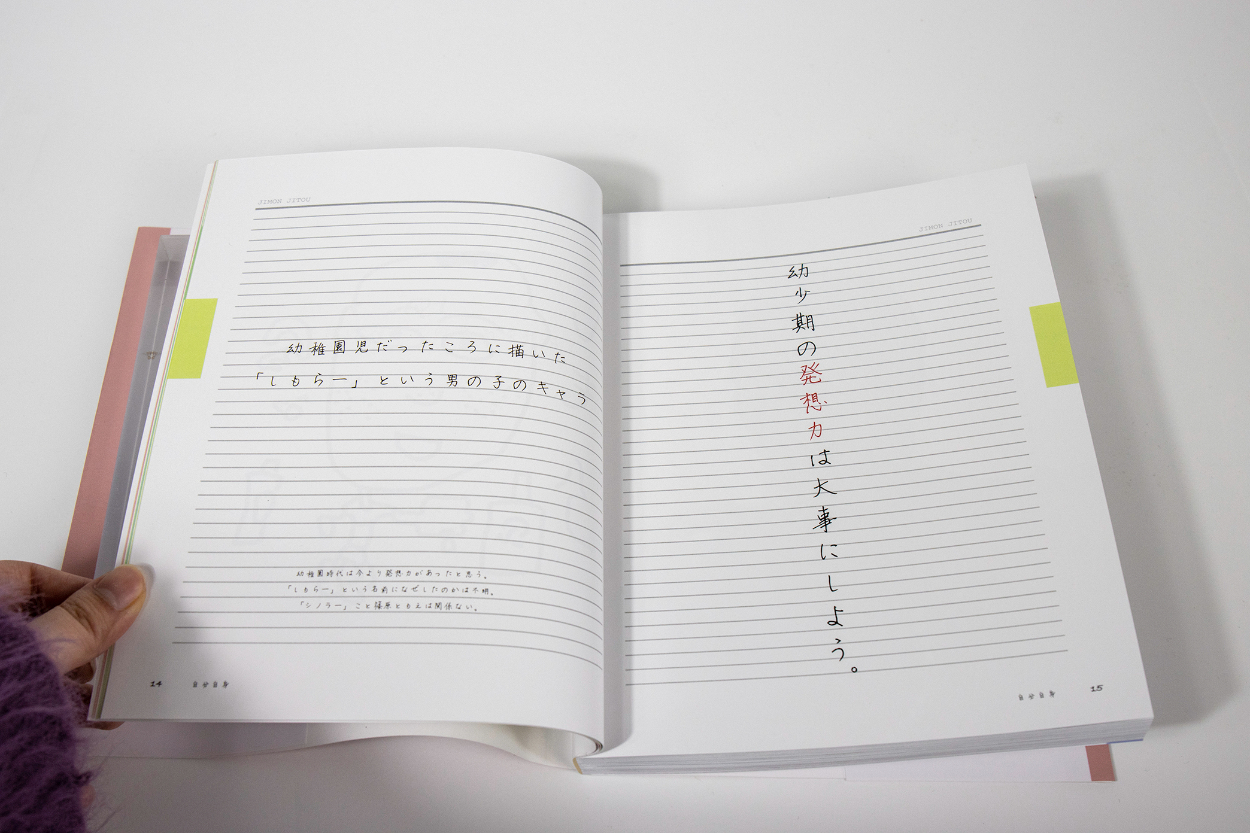 JIMON JITOU
幼稚園児だったころに描いた
「しもらー」という男の子のキャラ
幼稚園時代は今より発想力があったと思う。
「しもらー」という名前になぜしたのかは不明。
「シノラー」こと篠原ともえは関係ない。
14 自分自身
JIMON JITOU
幼少期の発想力は大事にしよう。
自分自身 15